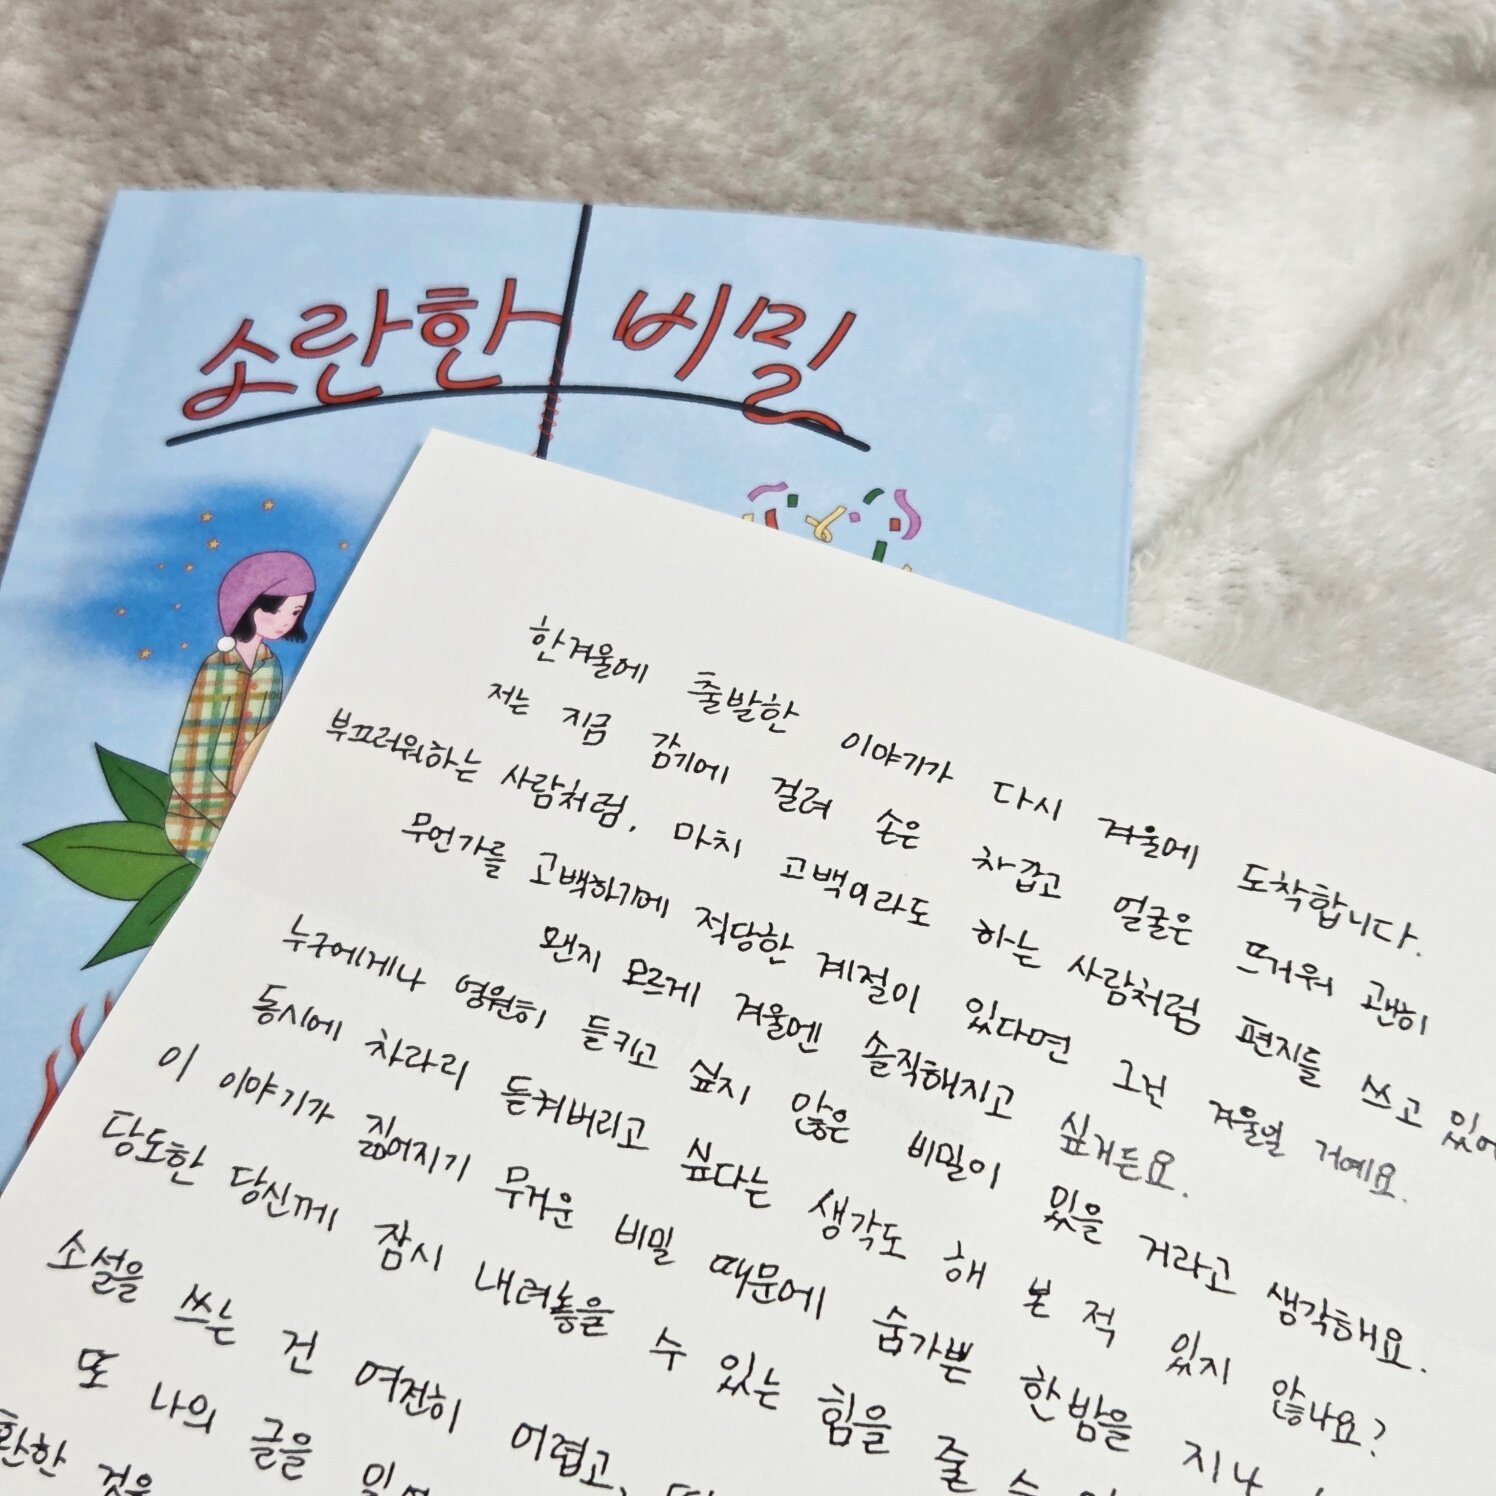 소란한 비밀
한겨울에 출발한 이야기가 다시 겨울에 도착합니다.
저는 지금 감기에 걸려 손은 차갑고 얼굴은 뜨거워 괜히
부끄러워하는 사람처럼, 마치 고백이라도 하는 사람처럼 편지를 쓰고 있어
무언가를 고백하기에 적당한 계절이 있다면 그건 겨울일 거예요.
왠지 모르게 겨울엔 솔직해지고 싶거든요.
누구에게나 영원히 들키고 싶지 않은 비밀이 있을 거라고 생각해요.
동시에 차라리 들켜버리고 싶다는 생각도 해 본 적 있지 않나요?
이 이야기가 짊어지기 무거운 비밀 때문에 숨가쁜 한밤을 지나
당도한 당신께 잠시 내려놓을 수 있는 힘을 줄 수
소설을 쓰는 건 여전히 어렵고,
또 나의 글을
환한 것을